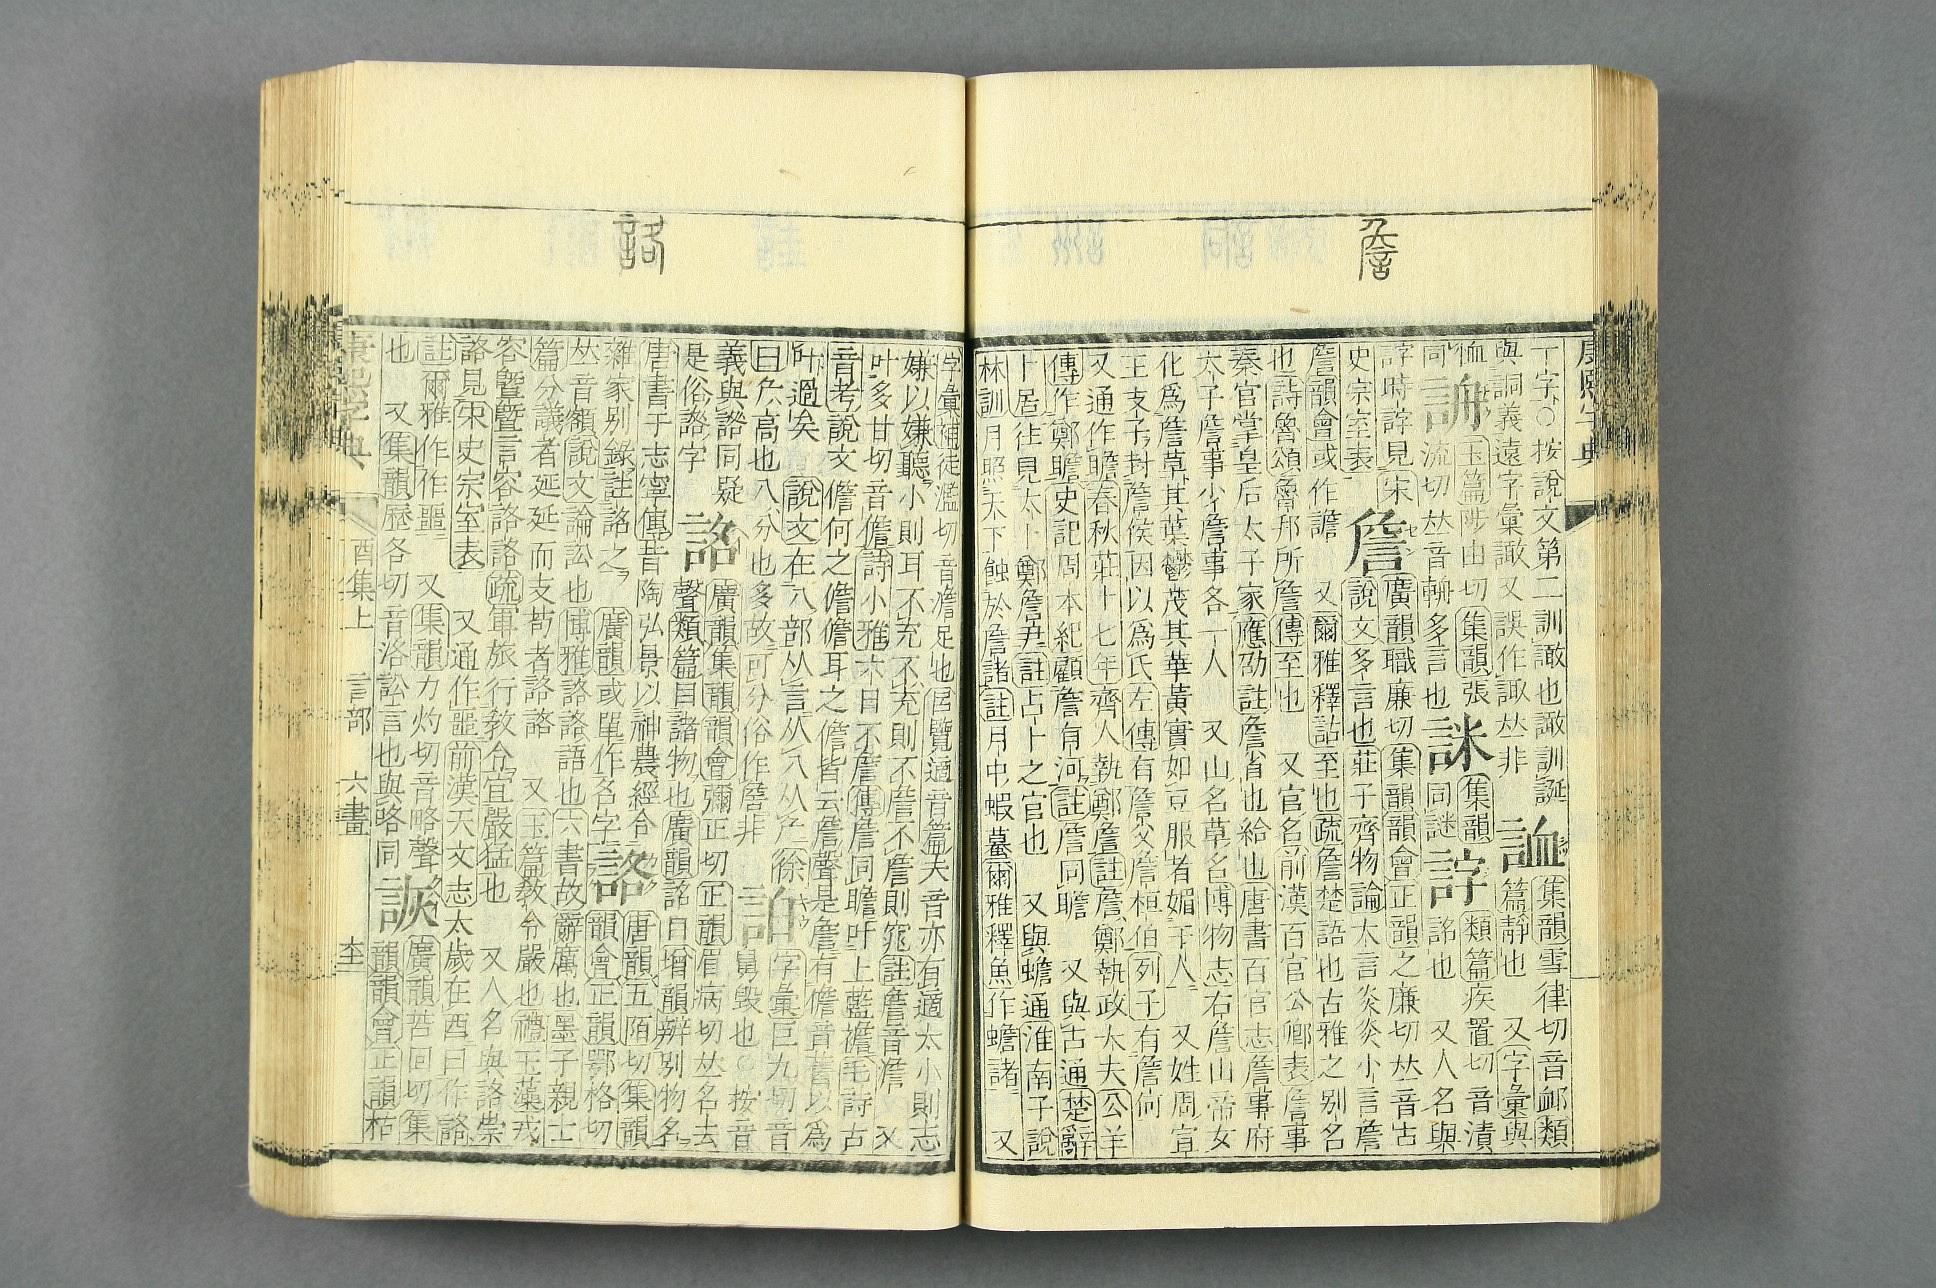 詹
丁字○按說文第二訓諏也諏訓誕 𧧌 集韻雪律切音卹類
與詷義遠字彙諏又誤作諏𠀤非 篇靜也 又字彙與
恤同 䛆 玉篇陟由切集韻張流切𠀤音輈多言也 詸 集韻同謎 䛐 類篇疾置切音漬
誻也 又人名與䛐時䛐見宋史宗室表
詹 廣韻職廉切集韻韻會正韻之廉切𠀤音占
說文多言也莊子齊物論大言炎炎小言詹
詹韻會或作譫 又爾雅釋詁至也疏詹楚語也古雅之別名
也詩魯頌魯邦所詹傳至也 又官名前漢百官公卿表詹事
秦官掌皇后太子家應劭註詹省也給也唐書百官志詹事府
太子詹事少詹事各一人 又山名草名博物志右詹山帝女
化爲詹草其葉鬱茂其華黃實如豆服者媚于人 又姓周宣
王支子封詹侯因以爲氏左傳有詹父詹桓伯列子有詹何
又通作瞻春秋莊十七年齊人執鄭詹註詹鄭執政大夫公羊
傳作鄭瞻史記周本紀顧詹有河註詹同瞻 又與占通楚辭
卜居往見太卜鄭詹尹註占卜之官也 又與蟾通淮南子說
林訓月照天下蝕於詹諸註月中蝦蟇爾雅釋魚作蟾諸 又
詻
字彙補徒濫切音澹足也呂覽適音篇夫音亦有適太小則志
嫌以嫌聽小則耳不充不充則不詹不詹則窕註詹音澹 又
叶多甘切音儋詩小雅六日不詹傳詹同瞻叶上藍襜毛詩古
音考說文儋何之儋儋耳之儋皆云詹聲是詹有儋音舊以爲
叶過矣 說文在八部从言从八从厃徐
曰厃高也八分也多故可分俗作詹非 䛮 字彙巨九切音舅毀也○按音
義與諮同疑是俗諮字 詺 廣韻集韻韻會彌正切正韻眉病切𠀤名去
聲類篇目諸物也廣韻詺目增韻辨別物名
唐書于志寧傳昔陶弘景以神農經合
雜家別錄註詺之 廣韻或單作名字 詻 唐韻五陌切集韻
韻會正韻鄂格切
𠀤音額說文論訟也博雅詻詻語也六書故辭厲也墨子親士
篇分議者延延而支苟者詻詻 又玉篇敎令嚴也禮玉藻戎
容曁曁言容詻詻疏軍旅行敎令宜嚴猛也 又人名與詻崇
詻見宋史宗室表 又通作噩前漢天文志太歲在酉曰作詻
註爾雅作作噩 又集韻力灼切音略聲
也 又集韻歷各切音洛訟言也與略同 詼 廣韻苦回切集
韻韻會正韻枯
康熙字典 酉集上 言部 六畫
康熙字典